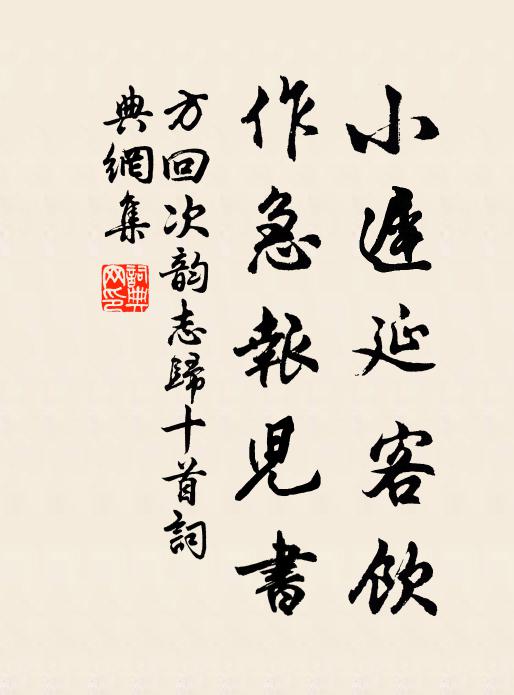 小遲延客飲
作急報兒書
方回次韵志歸十首詞
典網集
詞典網印